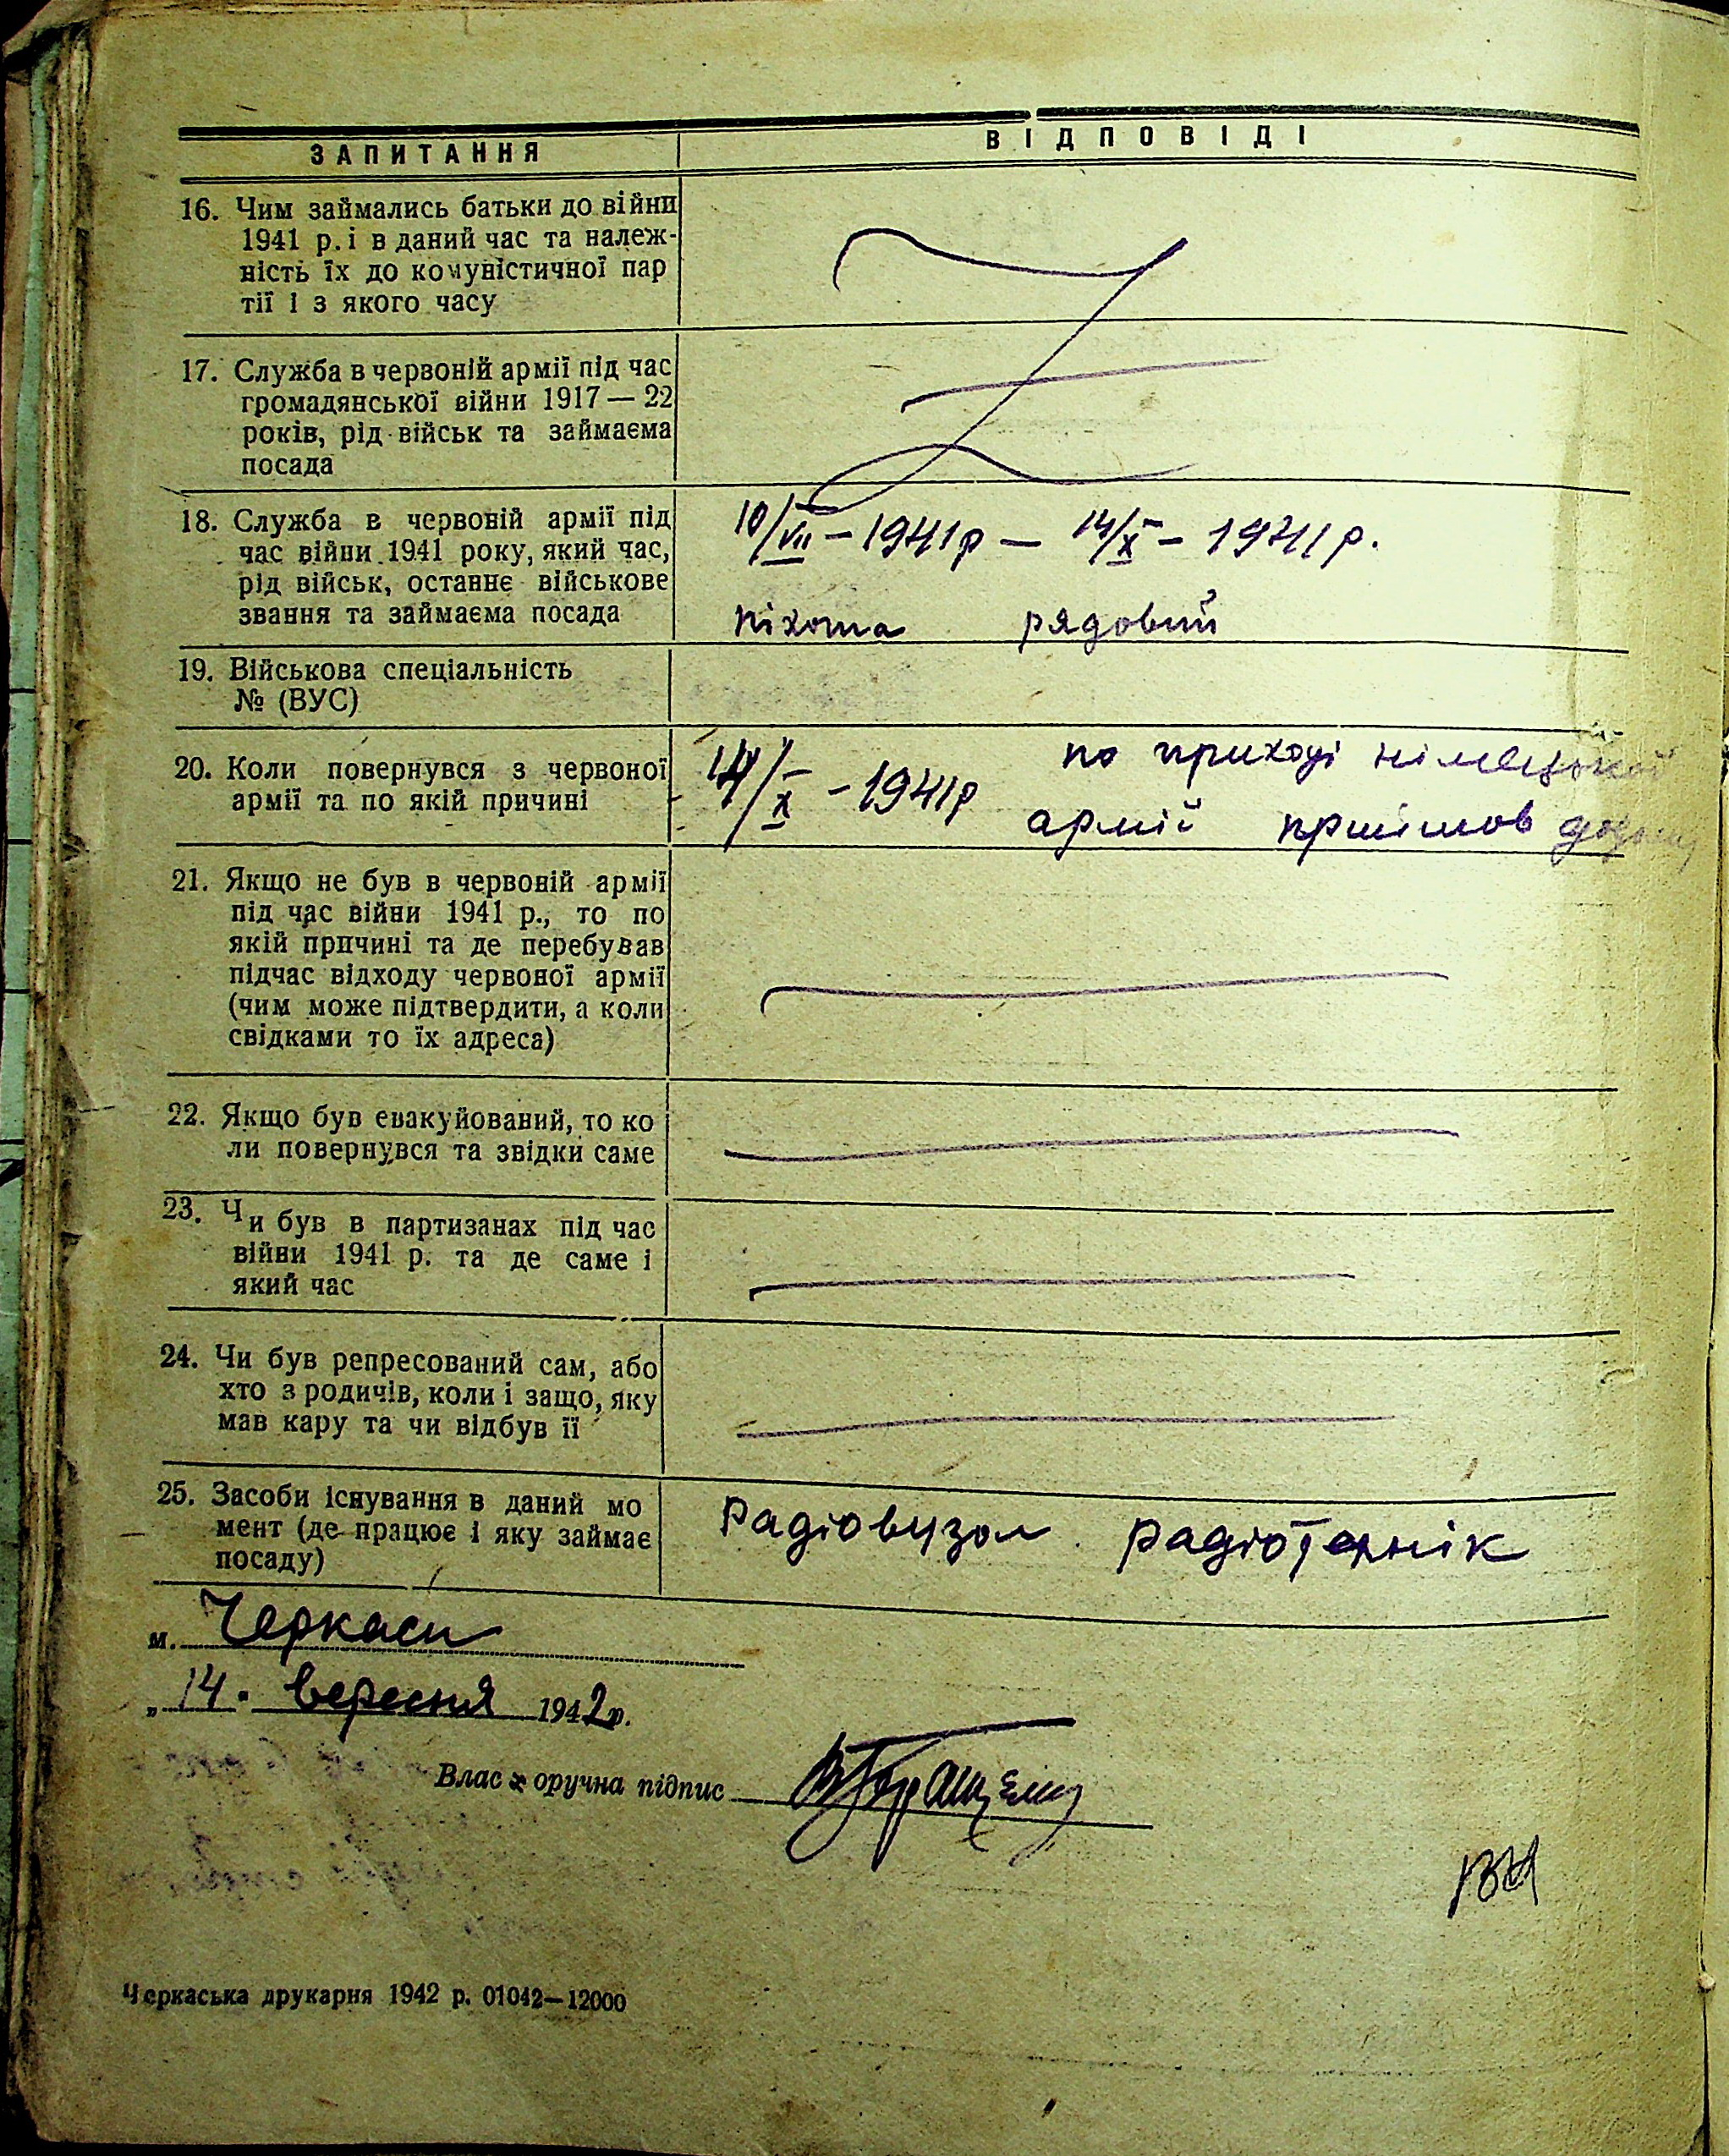 ЗАПИТАННЯ
ВІДПОВІДІ
16. Чим займались батьки до війни
1941 р. і в даний час та належ-
ність їх до комуністичної пар
тії і з якого часу
17. Служба в червоній армії під час
громадянської війни 1917 — 22
років, рід військ та займаєма
посада
18. Служба в червоній армії під
час війни 1941 року, який час,
рід військ, останнє військове
звання та займаєма посада
10/VII – 1941 р — 14/X – 1941 р.
піхота рядовий
19. Військова спеціальність
№ (ВУС)
20. Коли повернувся з червоної
армії та по якій причині
14/X – 1941 р по приході німецької
армії прийшов додому
21. Якщо не був в червоній армії
під час війни 1941 р., то по
якій причині та де перебував
підчас відходу червоної армії
(чим може підтвердити, а коли
свідками то їх адреса)
22. Якщо був евакуйований, то ко
ли повернувся та звідки саме
23. Чи був в партизанах під час
війни 1941 р. та де саме і
який час
24. Чи був репресований сам, або
хто з родичів, коли і защо, яку
мав кару та чи відбув її
25. Засоби існування в даний мо
мент (де працює і яку займає
посаду)
Радіовузол радіотехнік
м. Черкаси
„ 14. вересня 1942 р.
Власноручна підпис
Черкаська друкарня 1942 р. 01042—12000